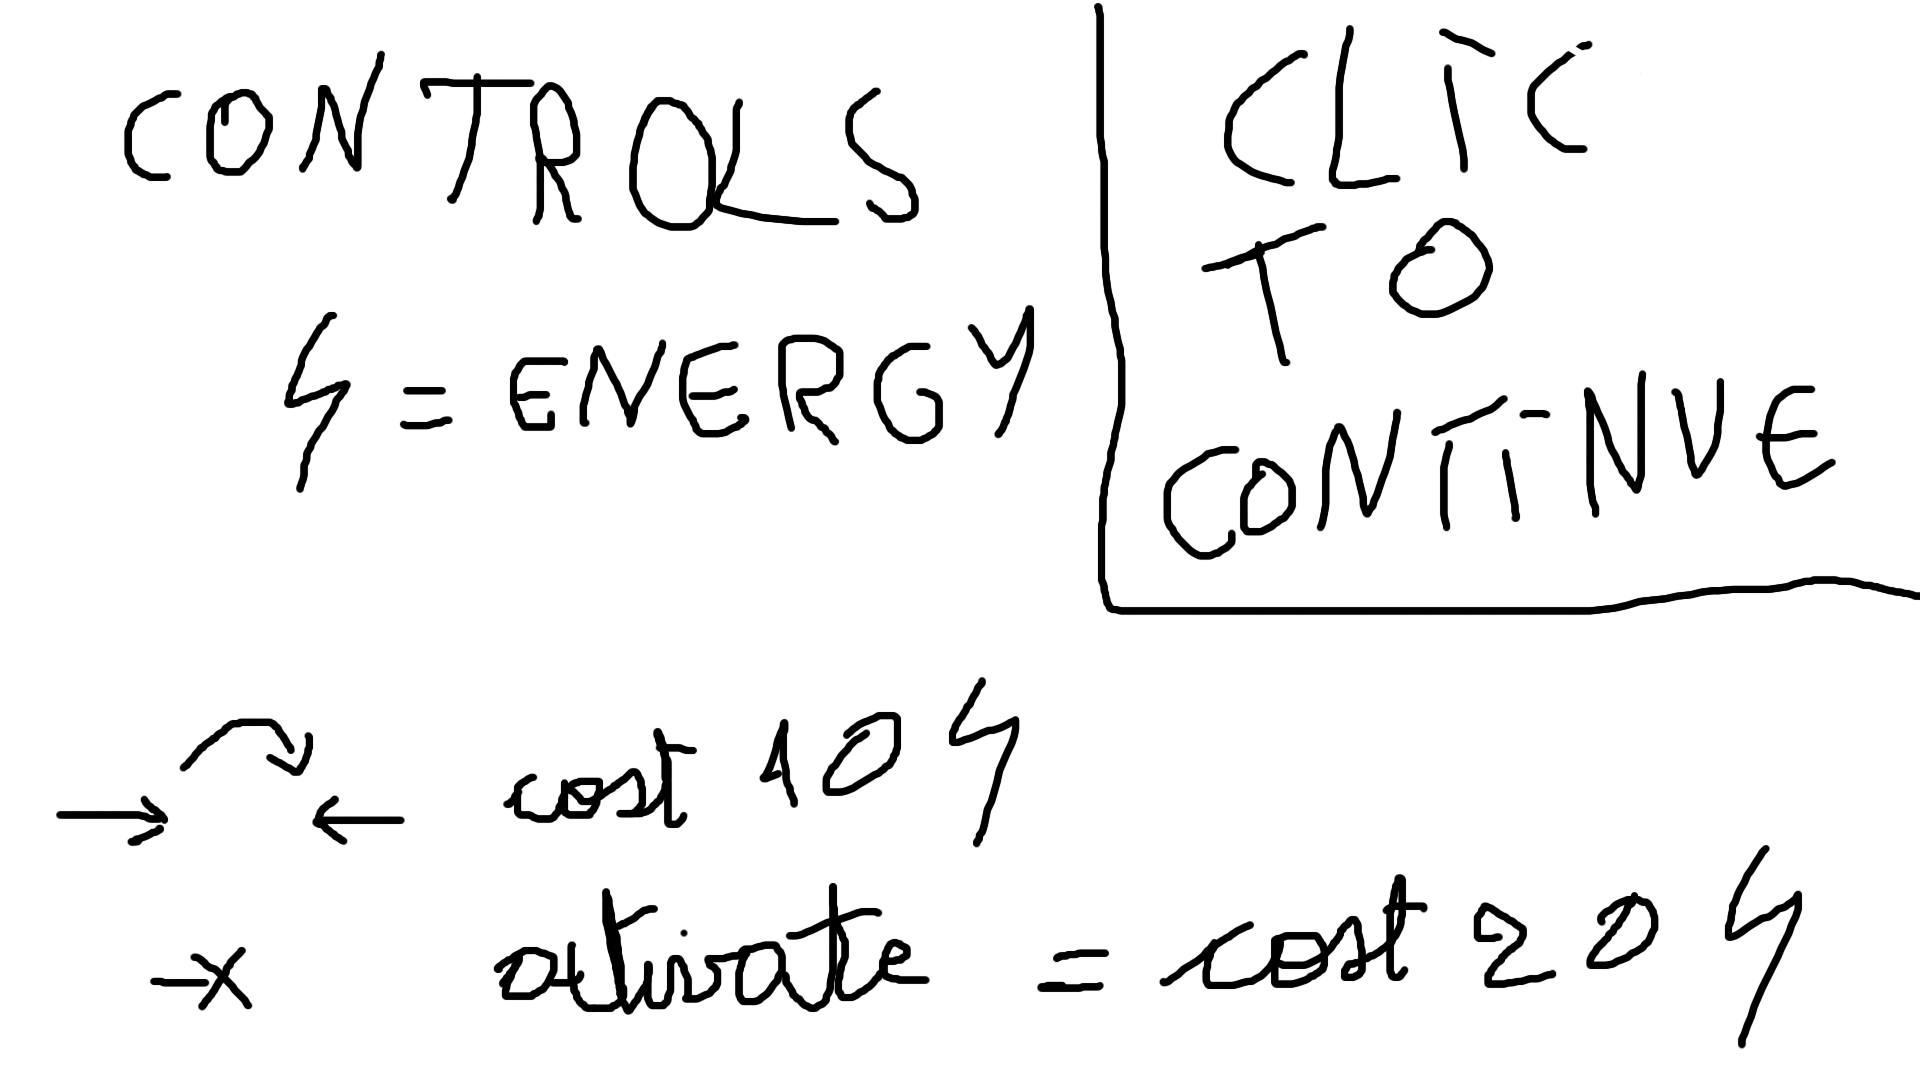 CONTROLS
⚡ = ENERGY
CLIC
TO
CONTINUE
→ ↷ ← cost 10 ⚡
→ X ativate = cost 20 ⚡